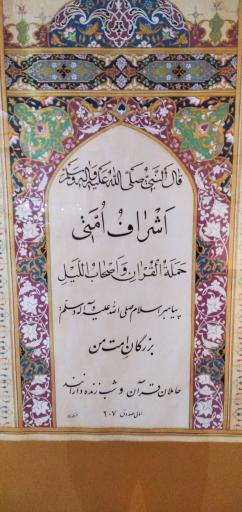 قال النبی صلی الله علیه وآله وسلم
اشراف امتی
حملة القرآن واصحاب اللیل
پیامبر اسلام صلی الله علیه وآله وسلم:
بزرگان امت من
حاملان قرآن و شب زنده دارانند
امالی صدوق ۶۰۷